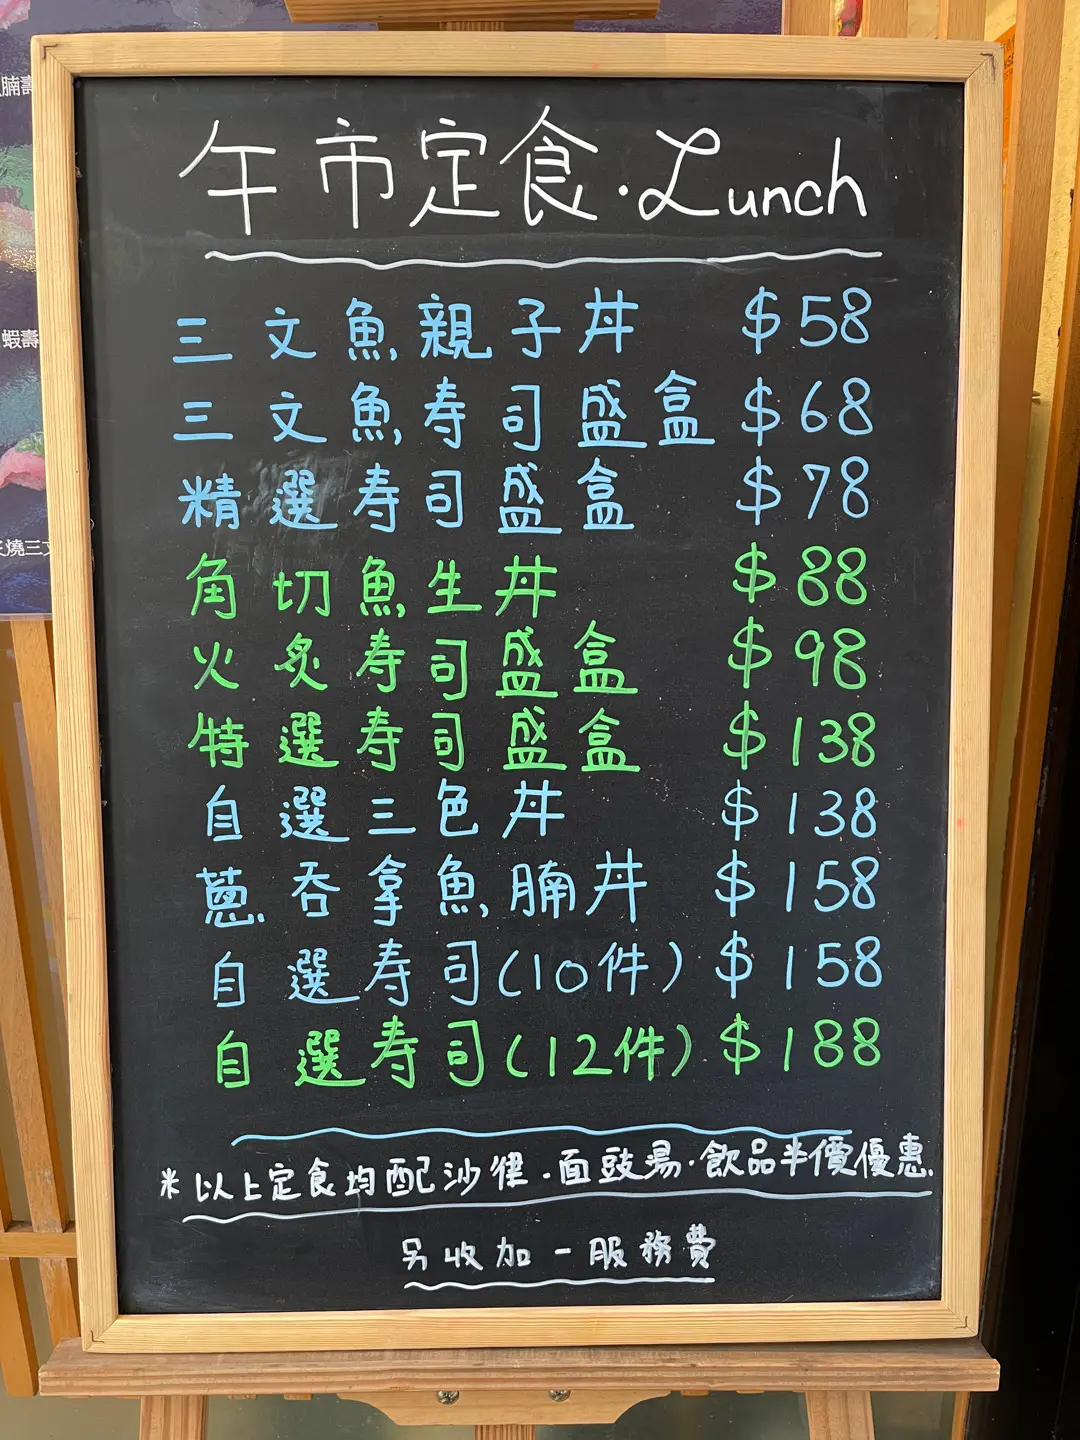 午市定食·Lunch
三文魚親子丼 $58
三文魚寿司盛盒 $68
精選寿司盛盒 $78
角切魚生丼 $88
火炙寿司盛盒 $98
特選寿司盛盒 $138
自選三色丼 $138
蔥吞拿魚腩丼 $158
自選寿司(10件) $158
自選寿司(12件) $188
*以上定食均配沙律·面豉湯·飲品半價優惠.
另收加一服務費
腩壽
蝦壽
燒三文